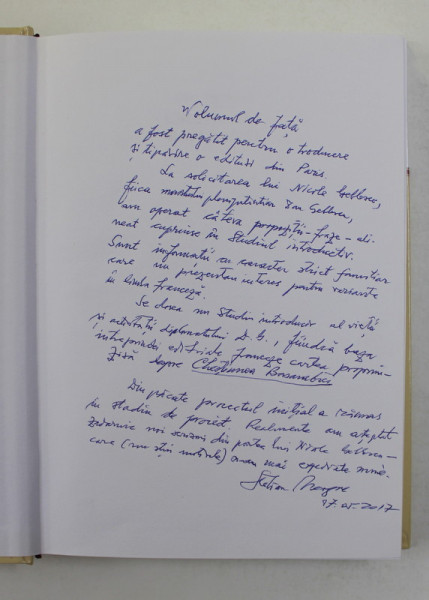 Volumul de față
a fost pregătit pentru o traducere
și tipărire o editură din Paris.
La solicitarea lui Nicole
fiica Ion
am operat câteva propoziții - fraze - ali-
neat cuprinse în Studiul introductiv.
Sunt informații cu caracter strict familiar
care nu prezentau interes pentru
în limba franceză.
Se dorea un Studiu introductiv al vieții
și activității diplomatului D. G., fiindcă baza
întreprinderii editoriale franceze cartea propriu-
zisă despre Chestiunea Basarabiei
Din păcate proiectul inițial a rămas
în stadiu de proiect. Realmente am așteptat
zadarnic noi din partea lui Nicole
care (nu știu motivele) mai expediate mie.
Stelian Neagoe
17.XI.2017